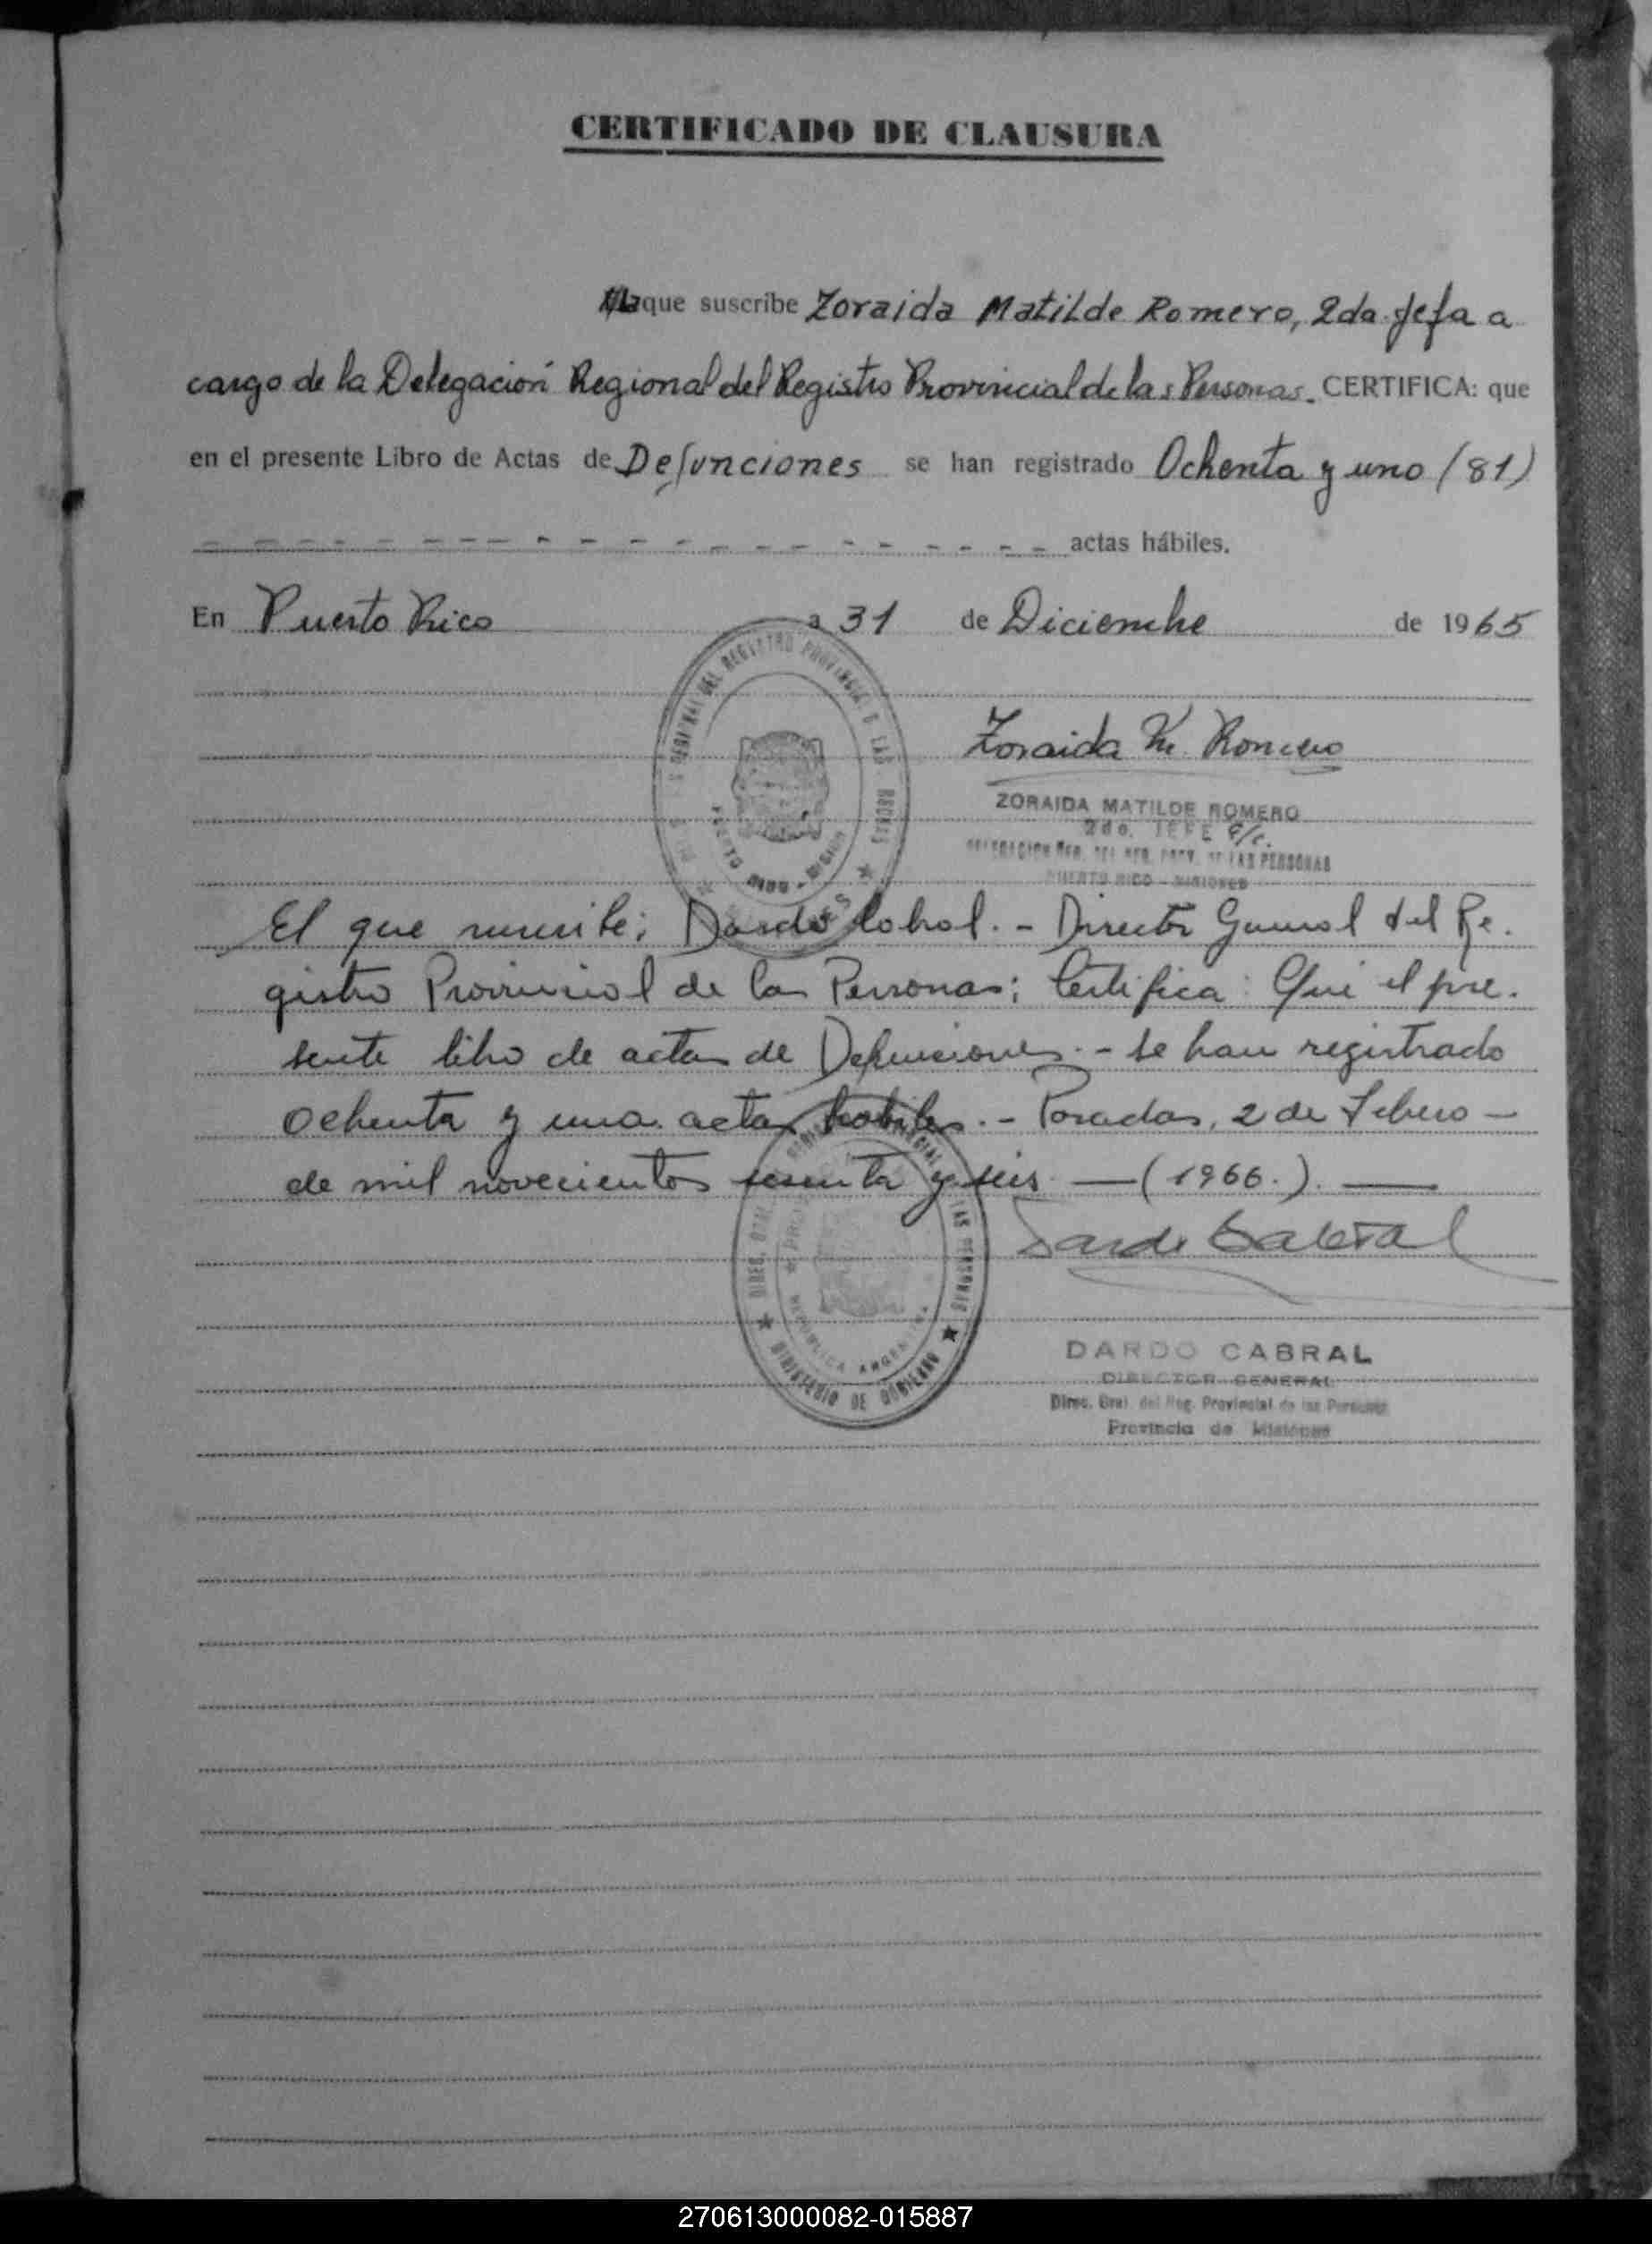 CERTIFICADO DE CLAUSURA
La que suscribe Zoraida Matilde Romero, 2da. Jefa a
cargo de la Delegación Regional del Registro Provincial de las Personas. CERTIFICA: que
en el presente Libro de Actas de Defunciones se han registrado Ochenta y uno (81)
actas hábiles.
En Puerto Rico a 31 de Diciembre de 1965
Zoraida M. Romero
ZORAIDA MATILDE ROMERO
2do. JEFE
DELEGACION REG. DEL REG. PROV. DE LAS PERSONAS
PUERTO RICO - MISIONES
El que suscribe; Dardo Cabral. - Director General del Re-
gistro Provincial de las Personas; Certifica: Que el pre-
sente libro de actas de Defunciones. - se han registrado
Ochenta y una actas habiles. - Posadas, 2 de Febrero -
de mil novecientos sesenta y seis — (1966.). —
Dardo Cabral
MINISTERIO DE GOBIERNO
REPUBLICA ARGENTINA
DARDO CABRAL
DIRECTOR GENERAL
Direc. Gral. del Reg. Provincial de las Personas
Provincia de Misiones
270613000082-015887